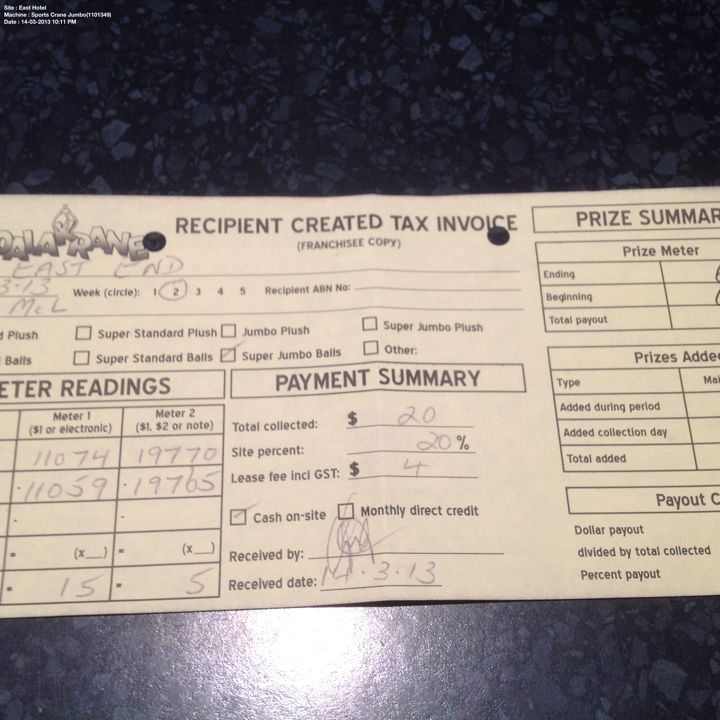 Site : East Hotel
Machine : Sports Crane Jumbo(1101349)
Date : 14-03-2013 10:11 PM
RECIPIENT CREATED TAX INVOICE
(FRANCHISEE COPY)
EAST END
3·13
McL
Week (circle): 1 2 3 4 5 Recipient ABN No:
d Plush Super Standard Plush Jumbo Plush Super Jumbo Plush
Balls Super Standard Balls Super Jumbo Balls Other:
ETER READINGS
Meter 1 Meter 2
($1 or electronic) ($1, $2 or note)
11074 19770
·11059 ·19765
- -
= (x__) = (x__)
= 15 = 5
PAYMENT SUMMARY
Total collected: $ 20
Site percent: 20 %
Lease fee incl GST: $ 4
Cash on-site Monthly direct credit
Received by:
Received date: 14·3·13
PRIZE SUMMAR
Prize Meter
Ending
Beginning
Total payout
Prizes Adde
Type Ma
Added during period
Added collection day
Total added
Payout C
Dollar payout
divided by total collected
Percent payout